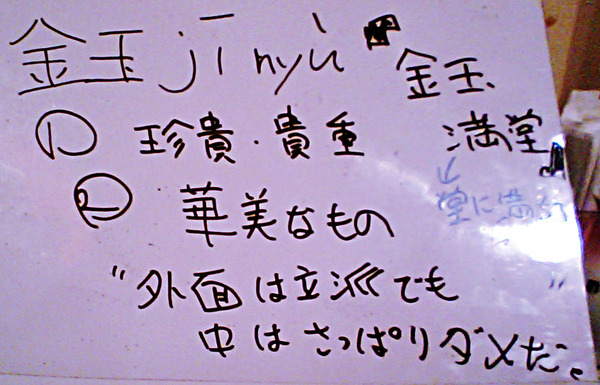 金玉 jīnyù
金玉、
満堂
↓
堂に満つ
① 珍貴・貴重
② 華美なもの
"外面は立派でも
中はさっぱりダメだ。"